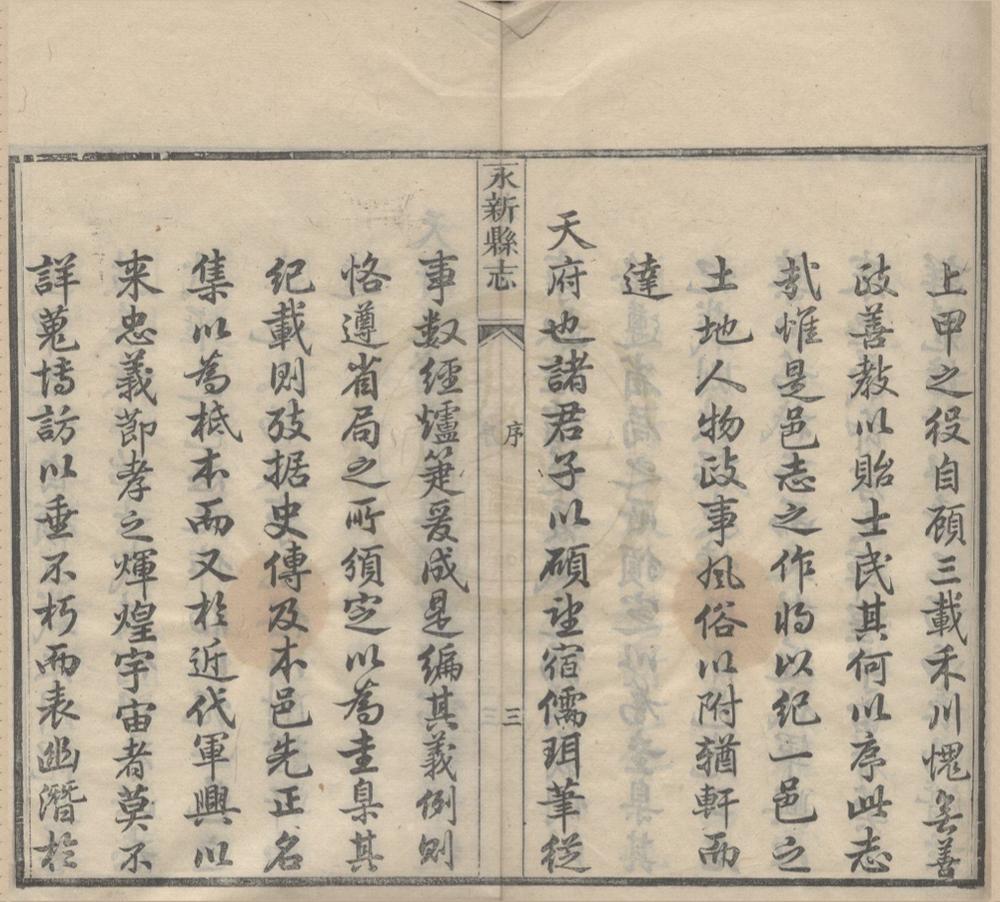 上甲之役自顧三載禾川愧無善
政善教以貽士民其何以序此志
哉惟是邑志之作將以紀一邑之
土地人物政事風俗以附輶軒而
達
天府也諸君子以碩望宿儒珥筆從
永新縣志
序
三
事数經爐箑爰成是編其義例則
恪遵省局之所頒定以為圭臬其
紀載則攷据史傳及本邑先正名
集以為柢本而又於近代軍興以
来忠義節孝之煇煌宇宙者莫不
詳蒐博訪以垂不朽而表幽潛於